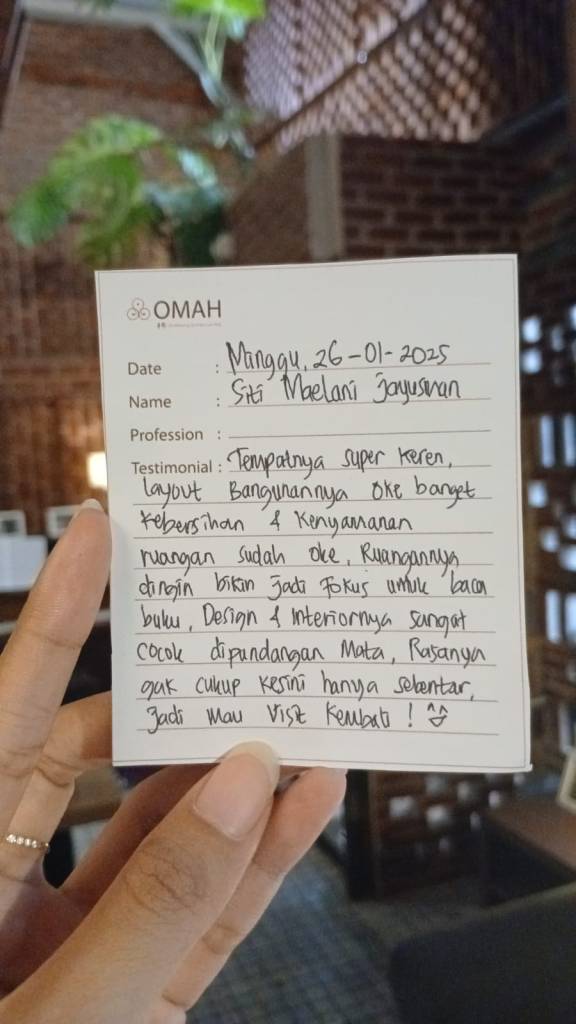 OMAH
Date : Minggu, 26-01-2025
Name : Siti Maelani Jayusman
Profession :
Testimonial : Tempatnya super keren,
layout Bangunannya oke banget
kebersihan & Kenyamanan
ruangan sudah oke, Ruangannya
dingin bikin jadi Fokus untuk baca
buku, Design & Interiornya sangat
cocok dipandangan Mata, Rasanya
gak cukup kesini hanya sebentar,
Jadi Mau Visit Kembali ! ^^